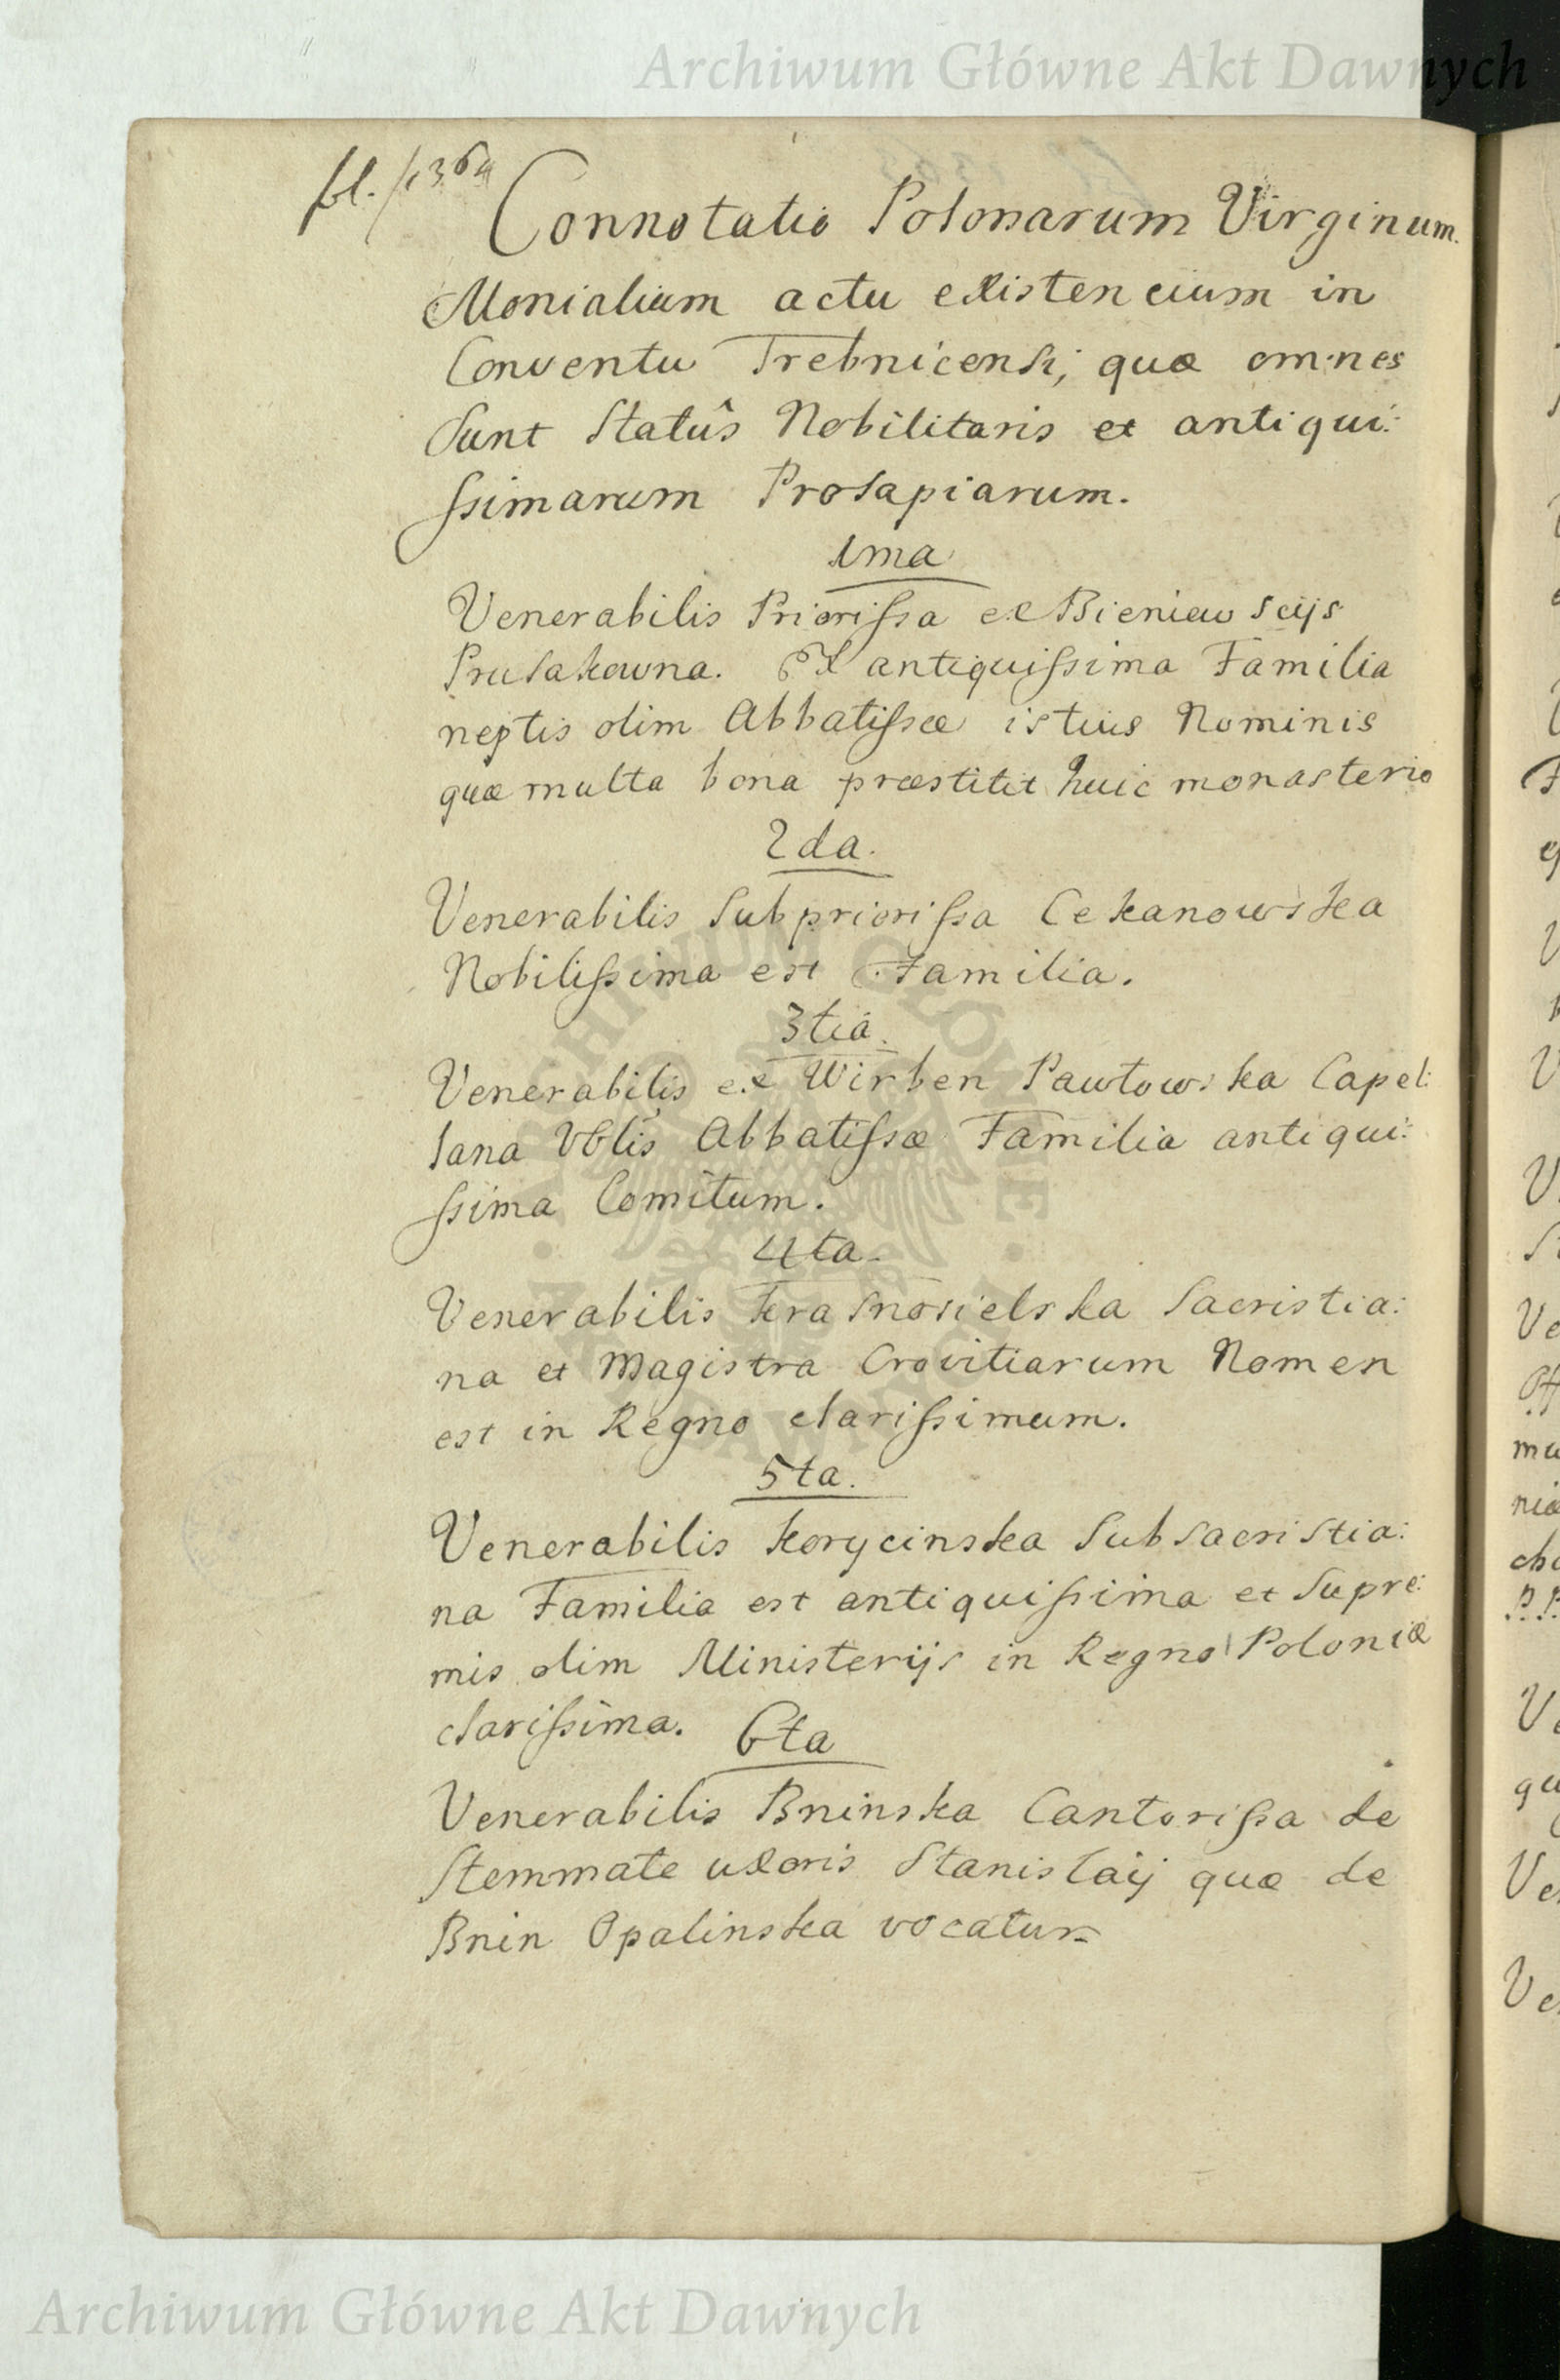 Archiwum Główne Akt Dawnych
fol. 1364
Connotatio Polonarum Virginum
Monialium actu existencium in
Conventu Trebnicensi, quæ omnes
Sunt Statûs Nobilitaris et antiqui:
ssimarum Prosapiarum.
1ma
Venerabilis Priorissa ex Bieniewscijs
Prusakowna. Ex antiquissima Familia
neptis olim Abbatissæ istius Nominis
quæ multa bona præstitit huic monasterio
2da.
Venerabilis Subpriorissa Cekanowska
Nobilissima est Familia.
3tia.
Venerabilis ex Wirben Pawłowska Capel:
lana Vblis Abbatissæ Familia antiqui:
ssima Comitum.
4ta.
Venerabilis Krasnosielska Sacristia:
na et Magistra Crovitiarum Nomen
est in Regno clarissimum.
5ta.
Venerabilis Korycinska Subsacristia:
na Familia est antiquissima et Supre:
mis olim Ministerijs in Regno Poloniæ
clarissima. 6ta
Venerabilis Bninska Cantorissa de
Stemmate uxoris Stanislaij quæ de
Bnin Opalinska vocatur
Archiwum Główne Akt Dawnych